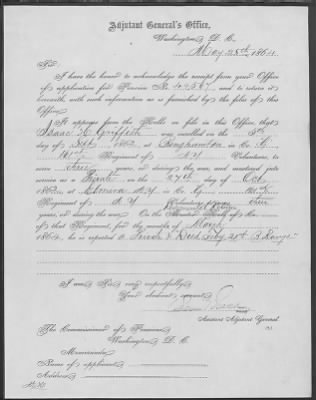 Adjutant General's Office,
Washington, D. C.
May 28th 1864
Sir:
I have the honor to acknowledge the receipt from your Office
of application for Pension No. 49387, and to return it
herewith, with such information as is furnished by the files of this
Office.
It appears from the Rolls on file in this Office, that
Isaac H. Griffeth was enrolled on the
day of Sept, 1862, at Binghamton in Co. G,
Regiment of N.Y. Volunteers, to
serve three years, or during the war, and mustered into
service as a Private on the 27th day of Oct,
1862, at Elmira N.Y, in Co. G,
Regiment of N.Y. Volunteers, to serve three
years, or during the war. On the Muster Roll of Co.
of that Regiment, for the months of March
1864, he is reported
I am, Sir, very respectfully,
Your obedient servant,
Assistant Adjutant General
The Commissioner of Pensions
Washington, D. C.
Memoranda:
Name of applicant
Address